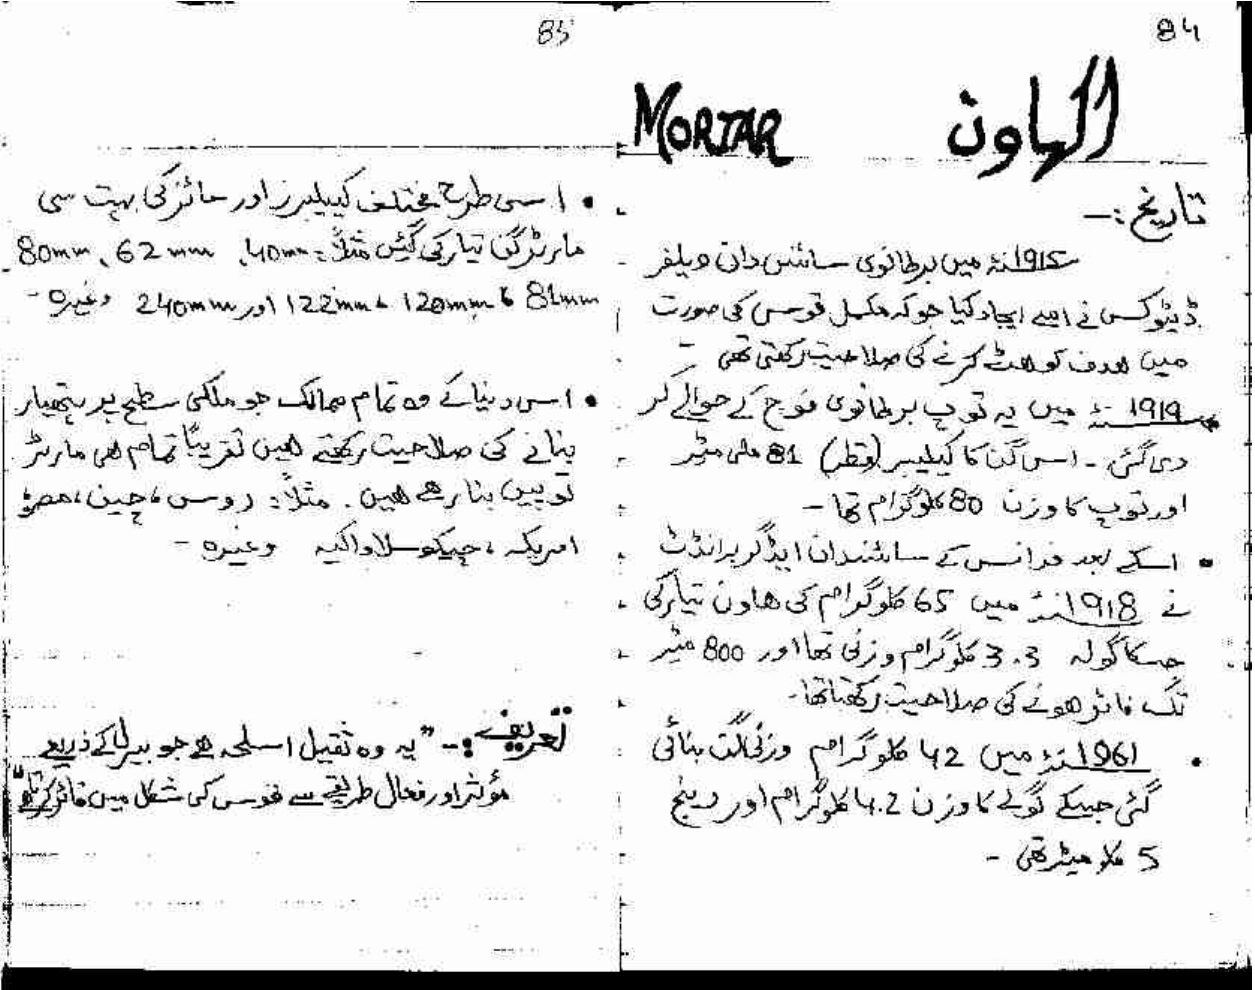 84
الهاون MORTAR
تاریخ :-
1915ء میں برطانوی سائنس دان ویلفر
نے اسے ایجاد کیا جو کہ مکمل قوس کی صورت
میں ھدف کو ھٹ کرنے کی صلاحیت رکھتی تھی -
1919ء میں یہ توپ برطانوی فوج کے حوالے کر
دی گئی - اس گن کا کیلیبر (قطر) 81 ملی میٹر
اور توپ کا وزن 80 کلوگرام تھا -
• اسکے بعد فرانس کے سائنسدان ایڈگر برانڈٹ
نے 1918ء میں 65 کلوگرام کی ھاون تیار کی
جسکا گولہ 3.3 کلوگرام وزنی تھا اور 800 میٹر
تک فائر ھونے کی صلاحیت رکھتا تھا -
• 1961ء میں 42 کلوگرام وزنی گن بنائی
گئی جسکے گولے کا وزن 4.2 کلوگرام اور رینج
5 کلو میٹر تھی -
85
• اسی طرح مختلف کیلیبرز اور سائز کی بہت سی
مارٹر گن تیار کی گئیں مثلاً: 40mm، 62mm، 80mm
81mm، 120mm، 122mm اور 240mm وغیرہ -
• اس دنیا کے وہ تمام ممالک جو ملکی سطح پر ہتھیار
بنانے کی صلاحیت رکھتے ھیں تقریباً تمام ھی مارٹر
توپیں بنا رھے ھیں. مثلاً: روس، چین، مصر،
امریکہ، چیکوسلاواکیہ وغیرہ -
تعریف :- "یہ وہ ثقیل اسلحہ ھے جو بیرل کے ذریعے
مؤثر اور فعال طریقے سے قوس کی شکل میں فائر کرتا ھے"